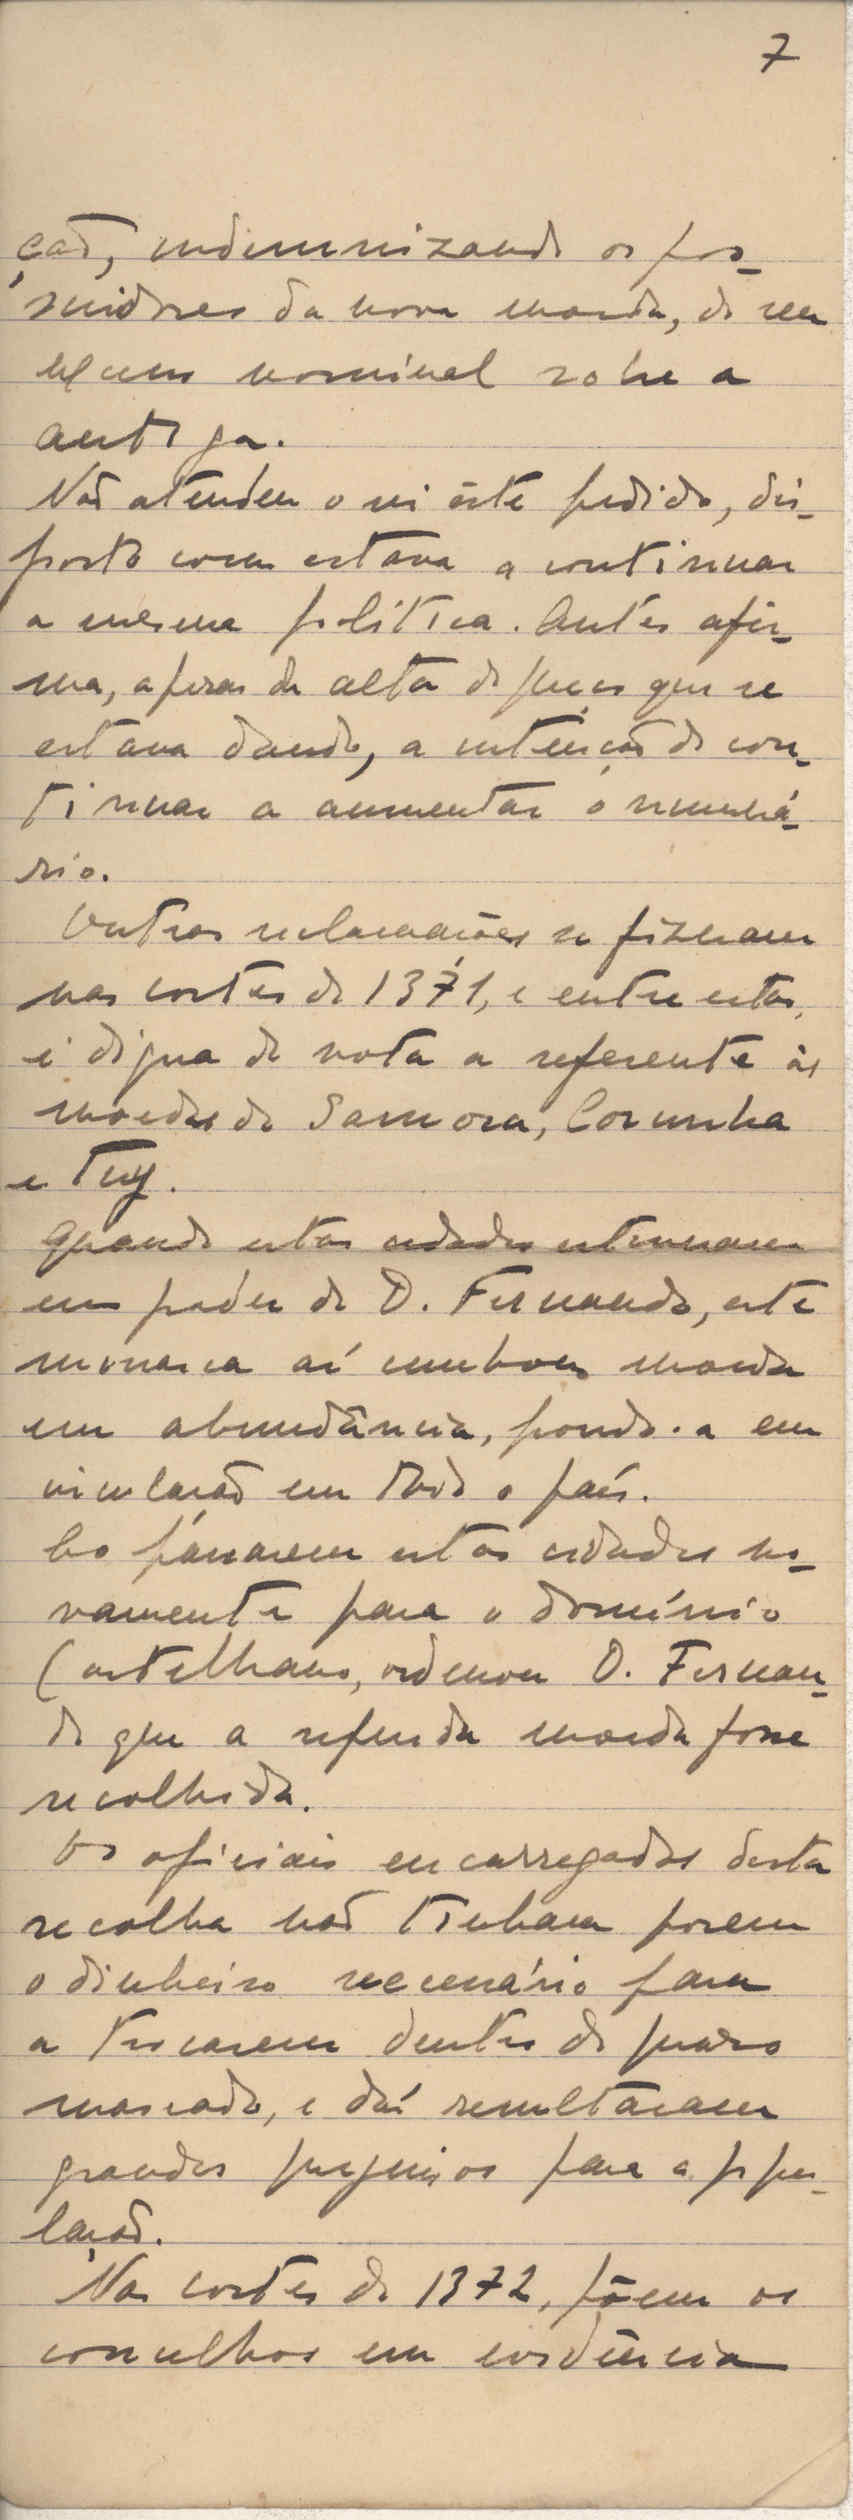 7
ção, indemnizando os pos-
suidores da nova moeda, do seu
excesso nominal sobre a
antiga.
Não atendeu o rei êste pedido, dis-
posto como estava a continuar
a mesma política. Antes afir-
ma, apesar da alta de preços que se
estava dando, a intenção de con-
tinuar a aumentar o numerá-
rio.
Outras reclamações se fizeram
nas cortes de 1371, e entre estas,
é digna de nota a referente às
moedas de Samora, Corunha
e Tuy.
Quando estas cidades estiveram
em poder de D. Fernando, este
monarca aí cunhou moeda
em abundância, pondo-a em
circulação em todo o país.
Ao passarem estas cidades no-
vamente para o domínio
Castelhano, ordenou D. Fernan-
do que a referida moeda fosse
recolhida.
Os oficiais encarregados desta
recolha não tinham porem
o dinheiro necessário para
a trocarem dentro do prazo
marcado, e daí resultaram
grandes prejuisos para a popu-
lação.
Nas cortes de 1372, põem os
concelhos em evidência